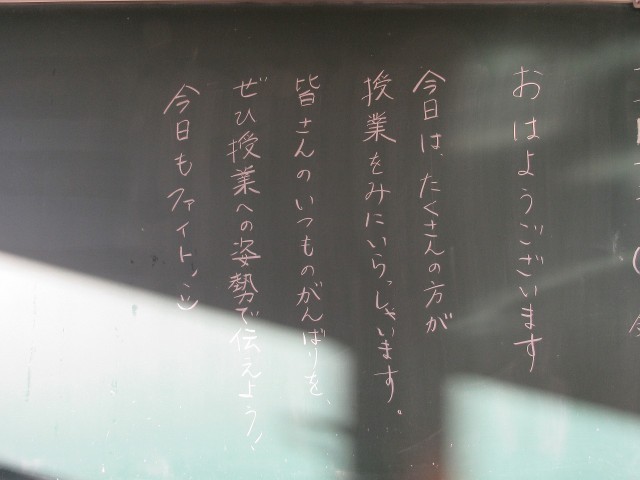 おはようございます
今日は、たくさんの方が
授業をみにいらっしゃいます。
皆さんのいつものがんばりを、
ぜひ授業への姿勢で伝えよう！
今日もファイト！